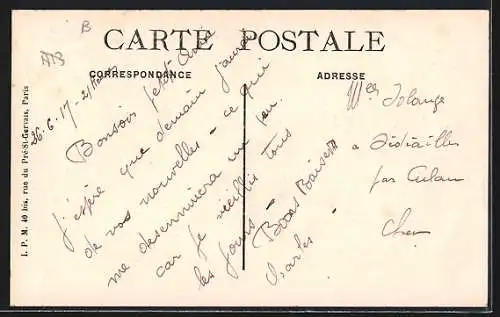 B
CARTE POSTALE
CORRESPONDANCE
ADRESSE
I. P. M. 40 bis, rue du Pré-St-Gervais, Paris
26-6-17 -
Bonsoir petit
J'espère que demain j'aurai
de vos nouvelles - ce qui
me désennuiera un peu.
car je vieillis tous
les jours -
Bons Baisers
Charles -
Mlle Solange
a
par
Cher